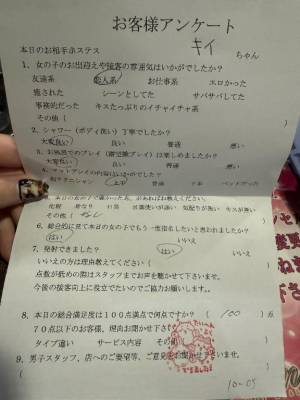 お客様アンケート
本日のお相手ホステス キイ ちゃん
1、女の子のお出迎えや接客の雰囲気はいかがでしたか?
友達系 恋人系 お仕事系 エロかった
癒された シーンとしてた サバサバしてた
事務的だった キスたっぷりのイチャイチャ系
その他(
2、シャワー(ボディ洗い)丁寧でしたか?
大変良い 良い 普通 悪い
は楽しめましたか?
大変良い 良い 普通 悪い
マットプレイの内容はいかがでしたか
上手 普通 下手
があればお教えください。
その他( なし
6、総合的に見て本日の女の子でもう一度指名したいと思われましたか?
はい いいえ
7、発射できました? はい いいえ
いいえの方は理由教えてください(
点数が低めの際はスタッフまでお声を聴かせて下さいませ。
今後の接客向上に役立てたいのでご協力お願いします。
8、本日の総合満足度は100点満点で何点ですか?( 100 )点
70点以下のお客様、理由お聞かせ下さ
タイプ違い サービス内容 その他
9、男子スタッフ、店へのご要望等、ご意見をお聞かせ下さいませ。
(
10-05